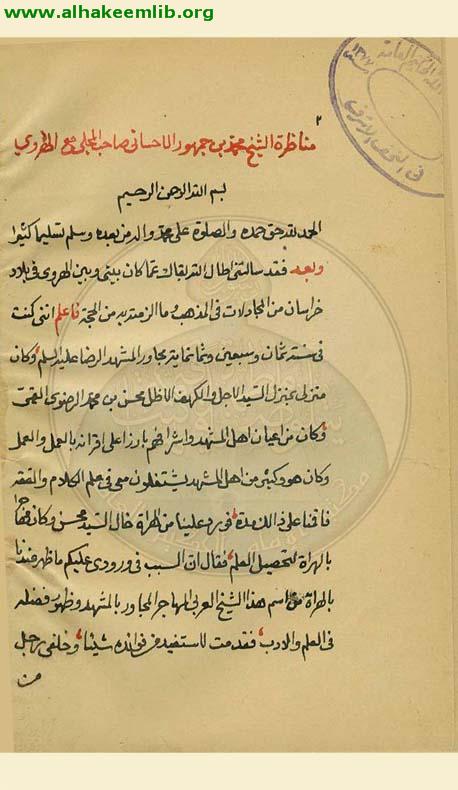 www.alhakeemlib.org
٢
مناظرة الشيخ محمد بن جمهور الاحسائي صاحب المجلي مع الهروي
بسم الله الرحمن الرحيم
الحمد لله حق حمده والصلوة على محمد واله من بعده وسلم تسليما كثيرا
وبعد فقد سالتني اطال الله بقاك عما كان بيني وبين الهروي في بلاد
خراسان من المجادلات في المذهب وما الزمته به من الحجة فاعلم انني كنت
في سنة ثمان وسبعين وثمانماية مجاور المشهد الرضا عليه السلم وكان
منزلي بمنزل السيد الاجل والكهف الاظل محسن بن محمد الرضوي القمي
وكان من اعيان اهل المشهد واشرافهم بارزا على اقرانه بالعلم والعمل
وكان هو وكثير من اهل المشهد يشتغلون معي في علم الكلام والفقه
فاقمنا على ذلك مدة فورد علينا من الهراة خال السيد محسن وكان مهاجرا
بالهراة لتحصيل العلم فقال ان السبب في ورودي عليكم ما ظهر عندنا
بالهراة من اسم هذا الشيخ العربي المهاجر المجاور بالمشهد وظهور فضله
في العلم والادب فقدمت لاستفيد من فوائده شيئا وخلفي رجل
من